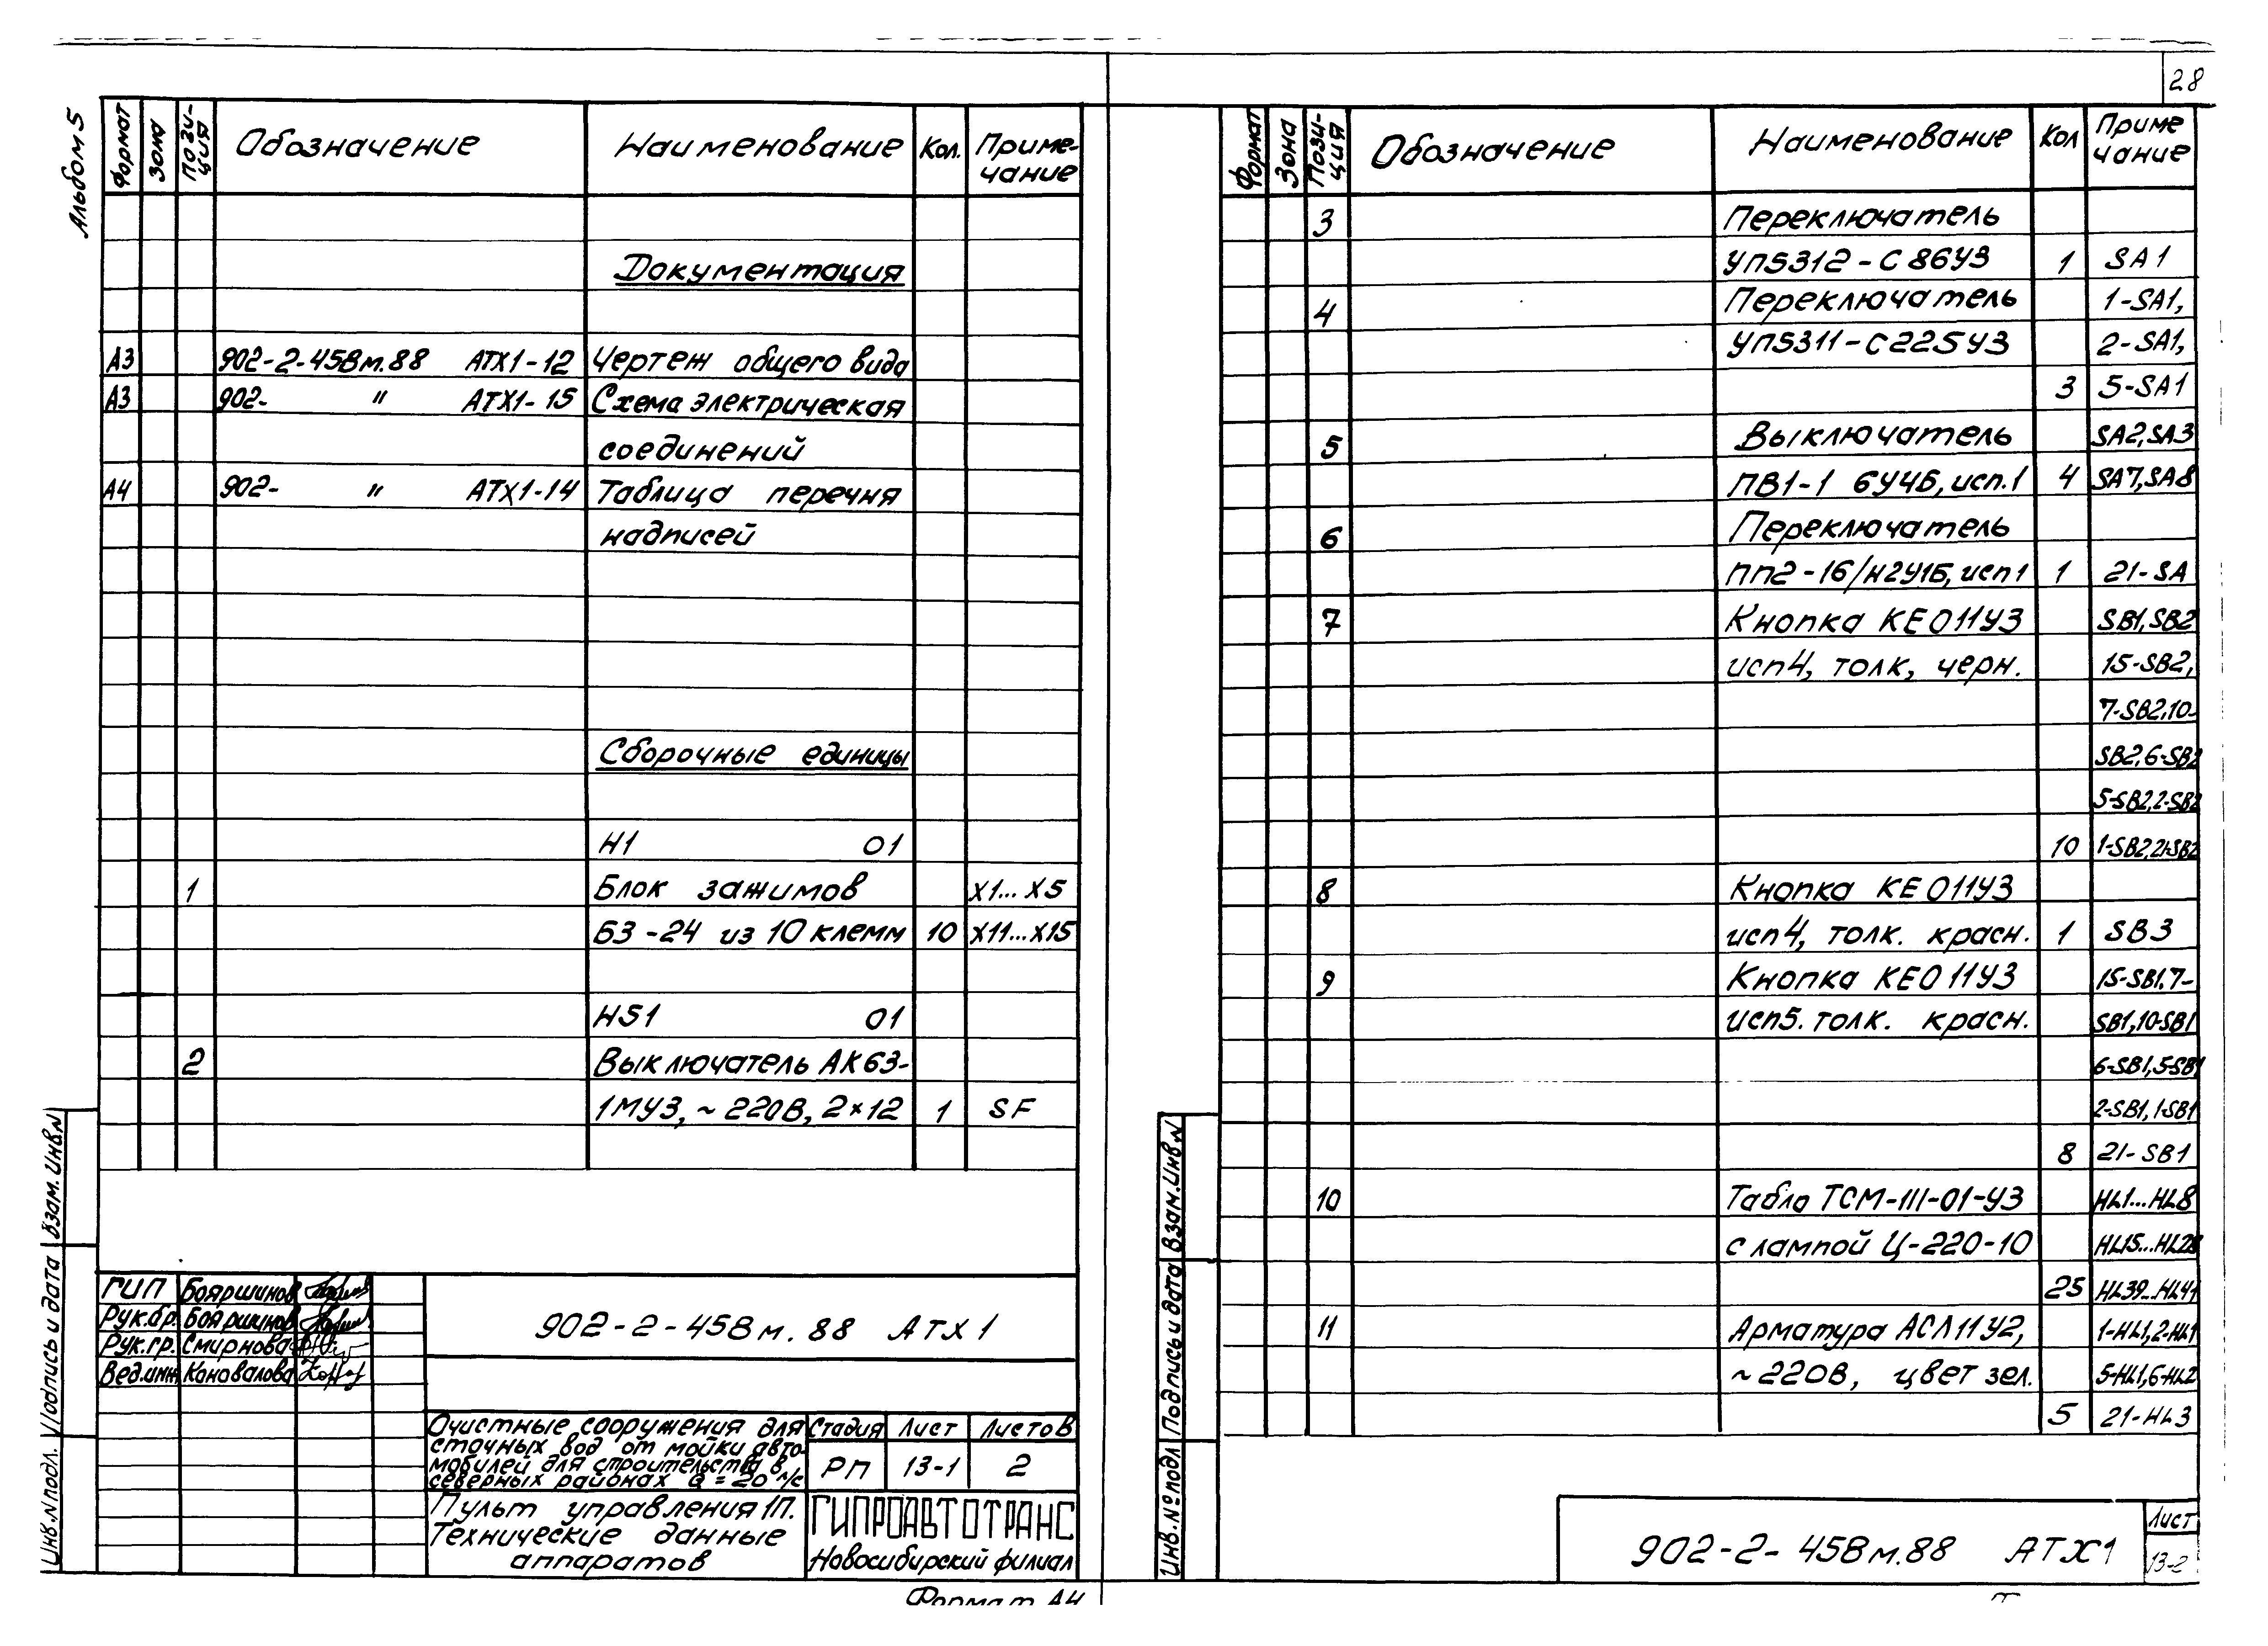 28
Альбом 5
Формат Зона Пози-ция Обозначение Наименование Кол. Приме-чание
Документация
А3 902-2-458м.88 АТХ1-12 Чертеж общего вида
А3 902- " АТХ1-15 Схема электрическая
соединений
А4 902- " АТХ1-14 Таблица перечня
надписей
Сборочные единицы
Н1 01
1 Блок зажимов Х1...Х5
БЗ-24 из 10 клемм 10 Х11...Х15
НS1 01
2 Выключатель АК63-
1МУ3, ~220В, 2×12 1 SF
ГИП Бояршинов
Рук.бр. Бояршинов
Рук.гр. Смирнова
Вед.инж Коновалова
902-2-458м.88 АТХ1
Очистные сооружения для
сточных вод от мойки авто-
мобилей для строительства в
северных районах Q=20 л/с
Стадия Лист Листов
РП 13-1 2
Пульт управления 1П.
Технические данные
аппаратов
ГИПРОАВТОТРАНС
Новосибирский филиал
Инв.N подл. Подпись и дата Взам.Инв.N
Формат А4
Формат Зона Пози-ция Обозначение Наименование Кол Приме чание
3 Переключатель
УП5312-С86У3 1 SA1
4 Переключатель 1-SA1,
УП5311-С225У3 2-SA1,
3 5-SA1
5 Выключатель SA2,SA3
ПВ1-1 6У4Б, исп.1 4 SA7,SA8
6 Переключатель
ПП2-16/Н2У1Б, исп1 1 21-SA
7 Кнопка КЕ011У3 SB1,SB2
исп4, толк, черн. 15-SB2,
7-SB2,10-
SB2,6-SB2
5-SB2,2-SB2
10 1-SB2,21-SB2
8 Кнопка КЕ011У3
исп4, толк. красн. 1 SB3
9 Кнопка КЕ011У3 15-SB1,7-
исп5. толк. красн. SB1,10-SB1
6-SB1,5-SB1
2-SB1,1-SB1
8 21-SB1
10 Табло ТСМ-III-01-У3 HL1...HL8
с лампой Ц-220-10 HL15...HL28
25 HL39...HL41
11 Арматура АСЛ11У2, 1-HL1,2-HL1
~220В, цвет зел. 5-HL1,6-HL2
5 21-HL3
Инв.№ подл Подпись и дата Взам.Инв.N
902-2-458м.88 АТХ1
Лист
13-2